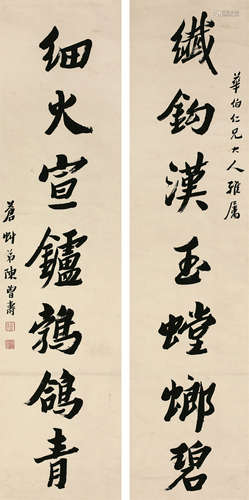 華伯仁兄大人雅屬
纖鉤漢玉螳螂碧
細火宣鑪鵓鴿青
蒼虯弟陳曾壽